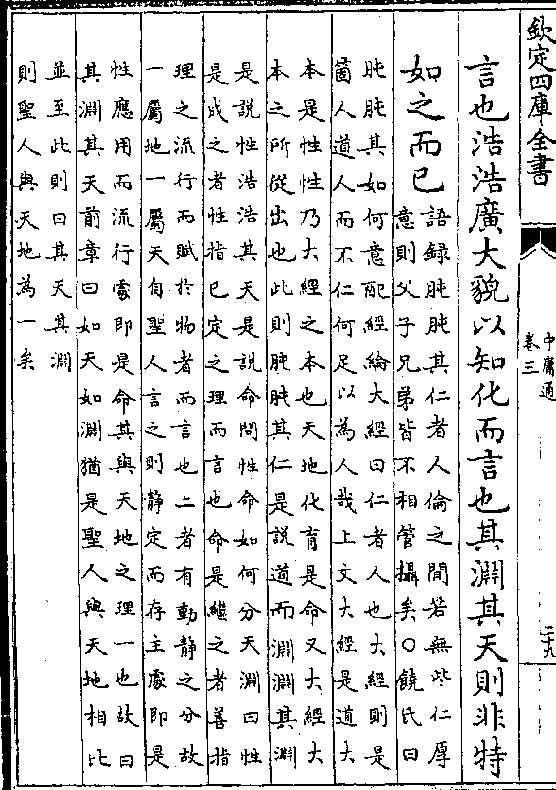 欽定四庫全書
中庸通
卷三
二十九
言也浩浩廣大貌以知化而言也其淵其天則非特
如之而已
語録肫肫其仁者人倫之間若無些仁厚
意則父子兄弟皆不相管攝矣○饒氏曰
肫肫其如何意配經綸大經曰仁者人也大經則是
箇人道人而不仁何足以為人哉上文大經是道大
本是性性乃大經之本也天地化育是命又大經大
本之所從出也此則肫肫其仁是説道而淵淵其淵
是説性浩浩其天是説命問性命如何分天淵曰性
是成之者性指已定之理而言也命是繼之者善指
理之流行而賦於物者而言也二者有動静之分故
一屬地一屬天自聖人言之則静定而存主處即是
性應用而流行處即是命其與天地之理一也故曰
其淵其天前章曰如天如淵猶是聖人與天地相比
並至此則曰其天其淵
則聖人與天地為一矣